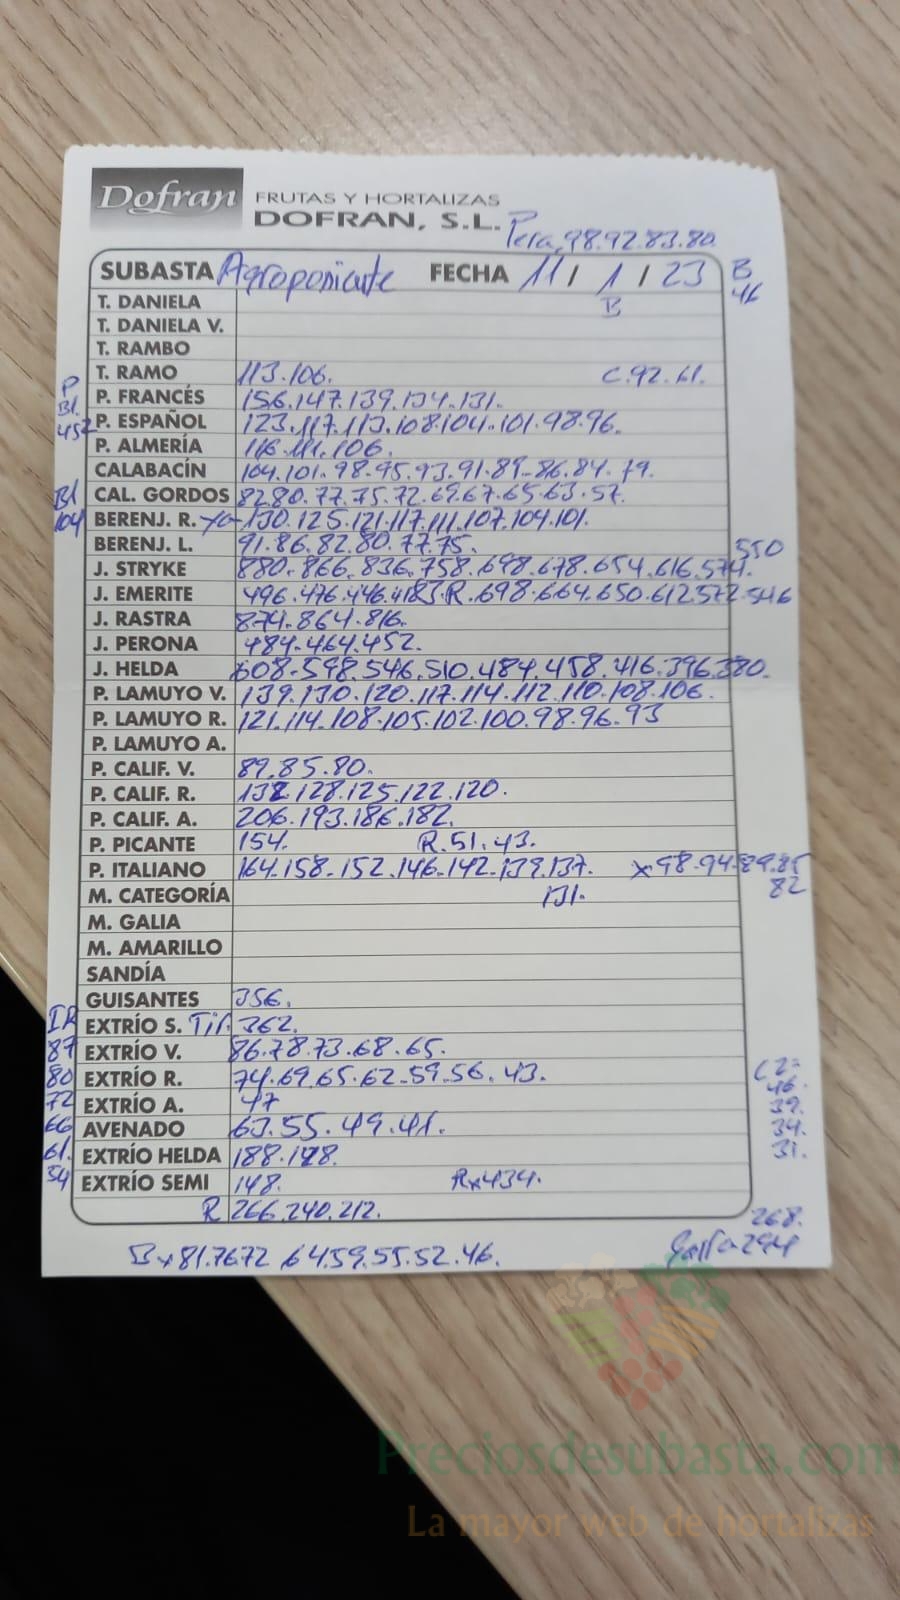 Dofran FRUTAS Y HORTALIZAS
DOFRAN, S.L.
Pera, 98.92.83.80.
SUBASTA Agroponiente FECHA 11 / 1 / 23 B
46
T. DANIELA B
T. DANIELA V.
T. RAMBO
T. RAMO 113.106. C.92.61.
P
P. FRANCÉS 156.147.139.134.131.
Bl.
452 P. ESPAÑOL 123.117.113.108.104.101.98.96.
P. ALMERÍA 116.111.106.
CALABACÍN 104.101.98.95.93.91.89.86.84.79.
Bl CAL. GORDOS 82.80.77.75.72.69.67.65.63.57.
104 BERENJ. R. 130.125.121.117.111.107.104.101.
BERENJ. L. 91.86.82.80.77.75. 550
J. STRYKE 880.866.836.758.698.678.654.616.574.
J. EMERITE 496.476.446.418 R.698.664.650.612.572.546
J. RASTRA 874.864.816.
J. PERONA 484.464.452.
J. HELDA 608.598.546.510.484.458.416.396.380.
P. LAMUYO V. 139.130.120.117.114.112.110.108.106.
P. LAMUYO R. 121.114.108.105.102.100.98.96.93
P. LAMUYO A.
P. CALIF. V. 89.85.80.
P. CALIF. R. 132.128.125.122.120.
P. CALIF. A. 206.193.186.182.
P. PICANTE 154. R.51.43.
P. ITALIANO 164.158.152.146.142.139.137. x98.94.89.85
M. CATEGORÍA 131. 82
M. GALIA
M. AMARILLO
SANDÍA
GUISANTES 356.
IR EXTRÍO S. Tir. 362.
87 EXTRÍO V. 86.78.73.68.65.
80 EXTRÍO R. 74.69.65.62.59.56.43.
46.
72 EXTRÍO A. 47 39.
66 AVENADO 63.55.49.41. 34.
61. EXTRÍO HELDA 188.128. 31.
54 EXTRÍO SEMI 148. Rx434.
R 266.240.212. 268.
Bx81.76.72 64.59.55.52.46. 294
Preciosdesubasta.com
La mayor web de hortalizas